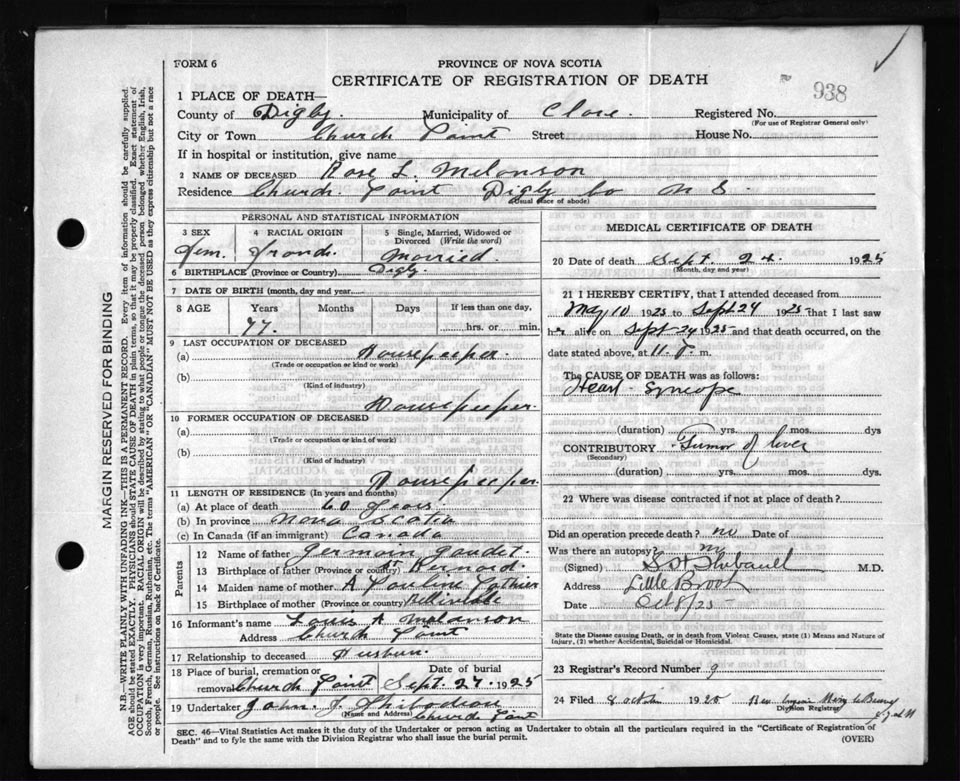 FORM 6
PROVINCE OF NOVA SCOTIA
CERTIFICATE OF REGISTRATION OF DEATH
938
1 PLACE OF DEATH—
County of Digby Municipality of Clare. Registered No.
(For use of Registrar General only)
City or Town Church Point Street House No.
If in hospital or institution, give name
2 NAME OF DECEASED Rose L. Melanson
Residence Church Point Digby Co N S.
(Usual place of abode)
PERSONAL AND STATISTICAL INFORMATION
3 SEX 4 RACIAL ORIGIN 5 Single, Married, Widowed or Divorced (Write the word)
Fem. Married.
6 BIRTHPLACE (Province or Country) Digby.
7 DATE OF BIRTH (month, day and year)
8 AGE Years Months Days If less than one day,
77. hrs. or min.
9 LAST OCCUPATION OF DECEASED
(a) Housekeeper.
(Trade or occupation or kind of work)
(b)
(Kind of industry)
Housekeeper.
10 FORMER OCCUPATION OF DECEASED
(a)
(Trade or occupation or kind of work)
(b)
(Kind of industry)
Housekeeper
11 LENGTH OF RESIDENCE (In years and months)
(a) At place of death 60 years
(b) In province Nova Scotia
(c) In Canada (if an immigrant) Canada
Parents
12 Name of father Germain Gaudet.
13 Birthplace of father (Province or country) St Bernard.
14 Maiden name of mother A Pauline
15 Birthplace of mother (Province or country) Belliveau
16 Informant's name Louis A Melanson
Address Church Point
17 Relationship to deceased Husbun.
18 Place of burial, cremation or removal Church Point Date of burial Sept. 27. 1925
19 Undertaker John. J. Thibodeau
(Name and Address) Church Point
MEDICAL CERTIFICATE OF DEATH
20 Date of death Sept. 24. 1925
(Month, day and year)
21 I HEREBY CERTIFY, that I attended deceased from
May 10 1925 to Sept 24 1925 that I last saw
h alive on Sept 24 1925 and that death occurred, on
date stated above, at 11. P. m.
The CAUSE OF DEATH was as follows:
Heart Syncope
(duration) yrs. mos. dys
CONTRIBUTORY Tumor of liver
(Secondary)
(duration) yrs. mos. dys.
22 Where was disease contracted if not at place of death?
Did an operation precede death? no Date of
Was there an autopsy? no
(Signed) Thibault M.D.
Address Little Brook
Date Oct 8/25
State the Disease causing Death, or in death from Violent Causes, state (1) Means and Nature of
Injury, (2) whether Accidental, Suicidal or Homicidal.
23 Registrar's Record Number 9
24 Filed 8 october 1925 Rev
Division Registrar
SEC. 46—Vital Statistics Act makes it the duty of the Undertaker or person acting as Undertaker to obtain all the particulars required in the "Certificate of Registration of
Death" and to fyle the same with the Division Registrar who shall issue the burial permit.
(OVER)
MARGIN RESERVED FOR BINDING
N.B.—WRITE PLAINLY WITH UNFADING INK—THIS IS A PERMANENT RECORD. Every item of information should be carefully supplied.
AGE should be stated EXACTLY. PHYSICIANS should STATE CAUSE OF DEATH in plain terms, so that it may be properly classified. Exact statement of
OCCUPATION is very important. RACIAL ORIGIN will be described by stating to what people or tongue the deceased person belonged whether English, Irish,
Scotch, French, German, Russian, Ruthenian, etc. The terms "AMERICAN" or "CANADIAN" MUST NOT BE USED as they express citizenship but not a race
or people. See instructions on back of Certificate.